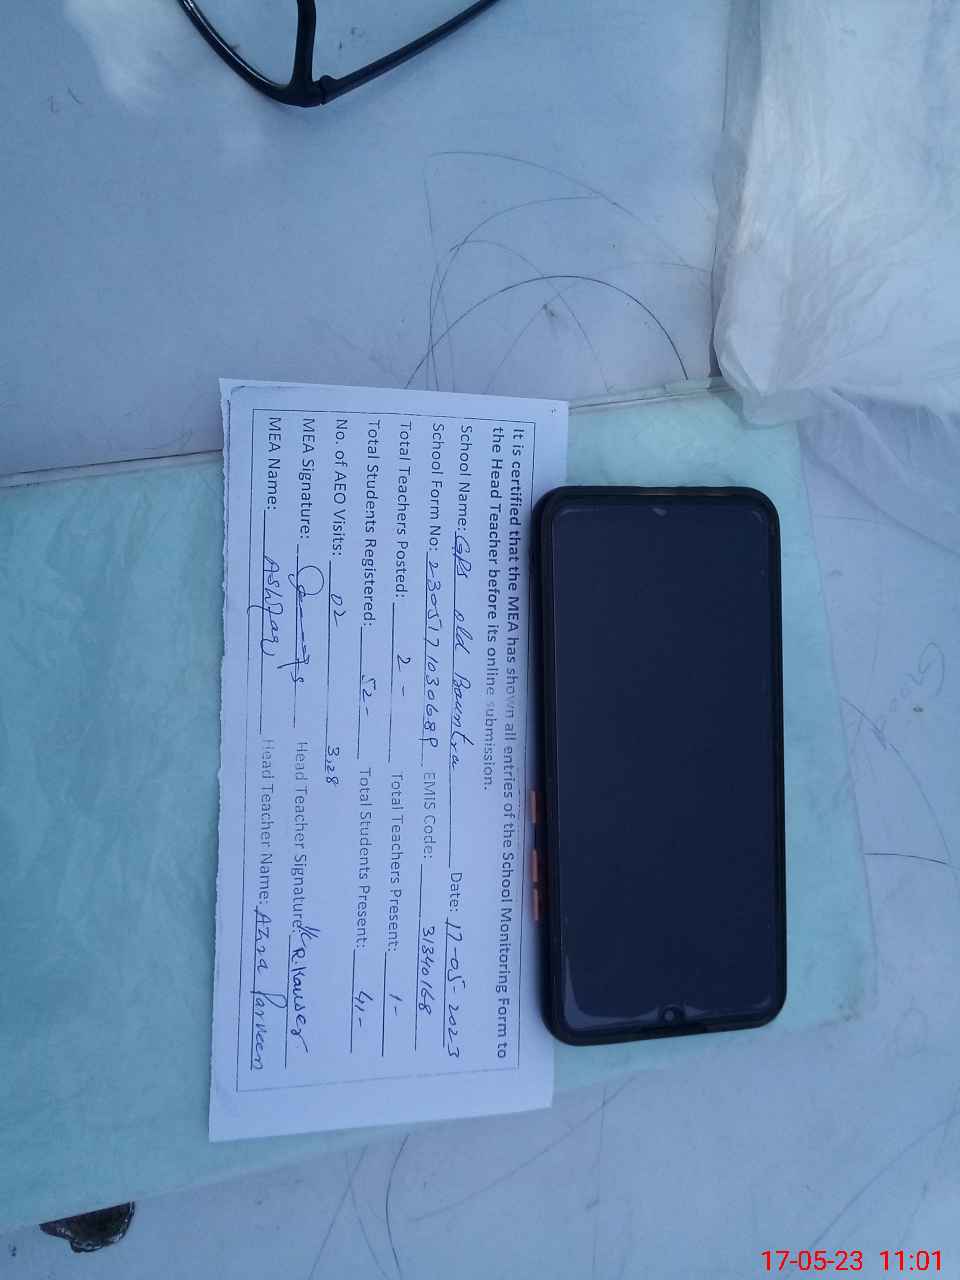 It is certified that the MEA has shown all entries of the School Monitoring Form to
the Head Teacher before its online submission.
School Name: GPS old Bauntra Date: 17-05-2023
School Form No: 230517103068P EMIS Code: 31340168
Total Teachers Posted: 2 - Total Teachers Present: 1-
Total Students Registered: 52- Total Students Present: 41-
No. of AEO Visits: 02 3,28
MEA Signature: Head Teacher Signature: R.Kauser
MEA Name: Ashfaq Head Teacher Name: Azra Parveen
17-05-23 11:01